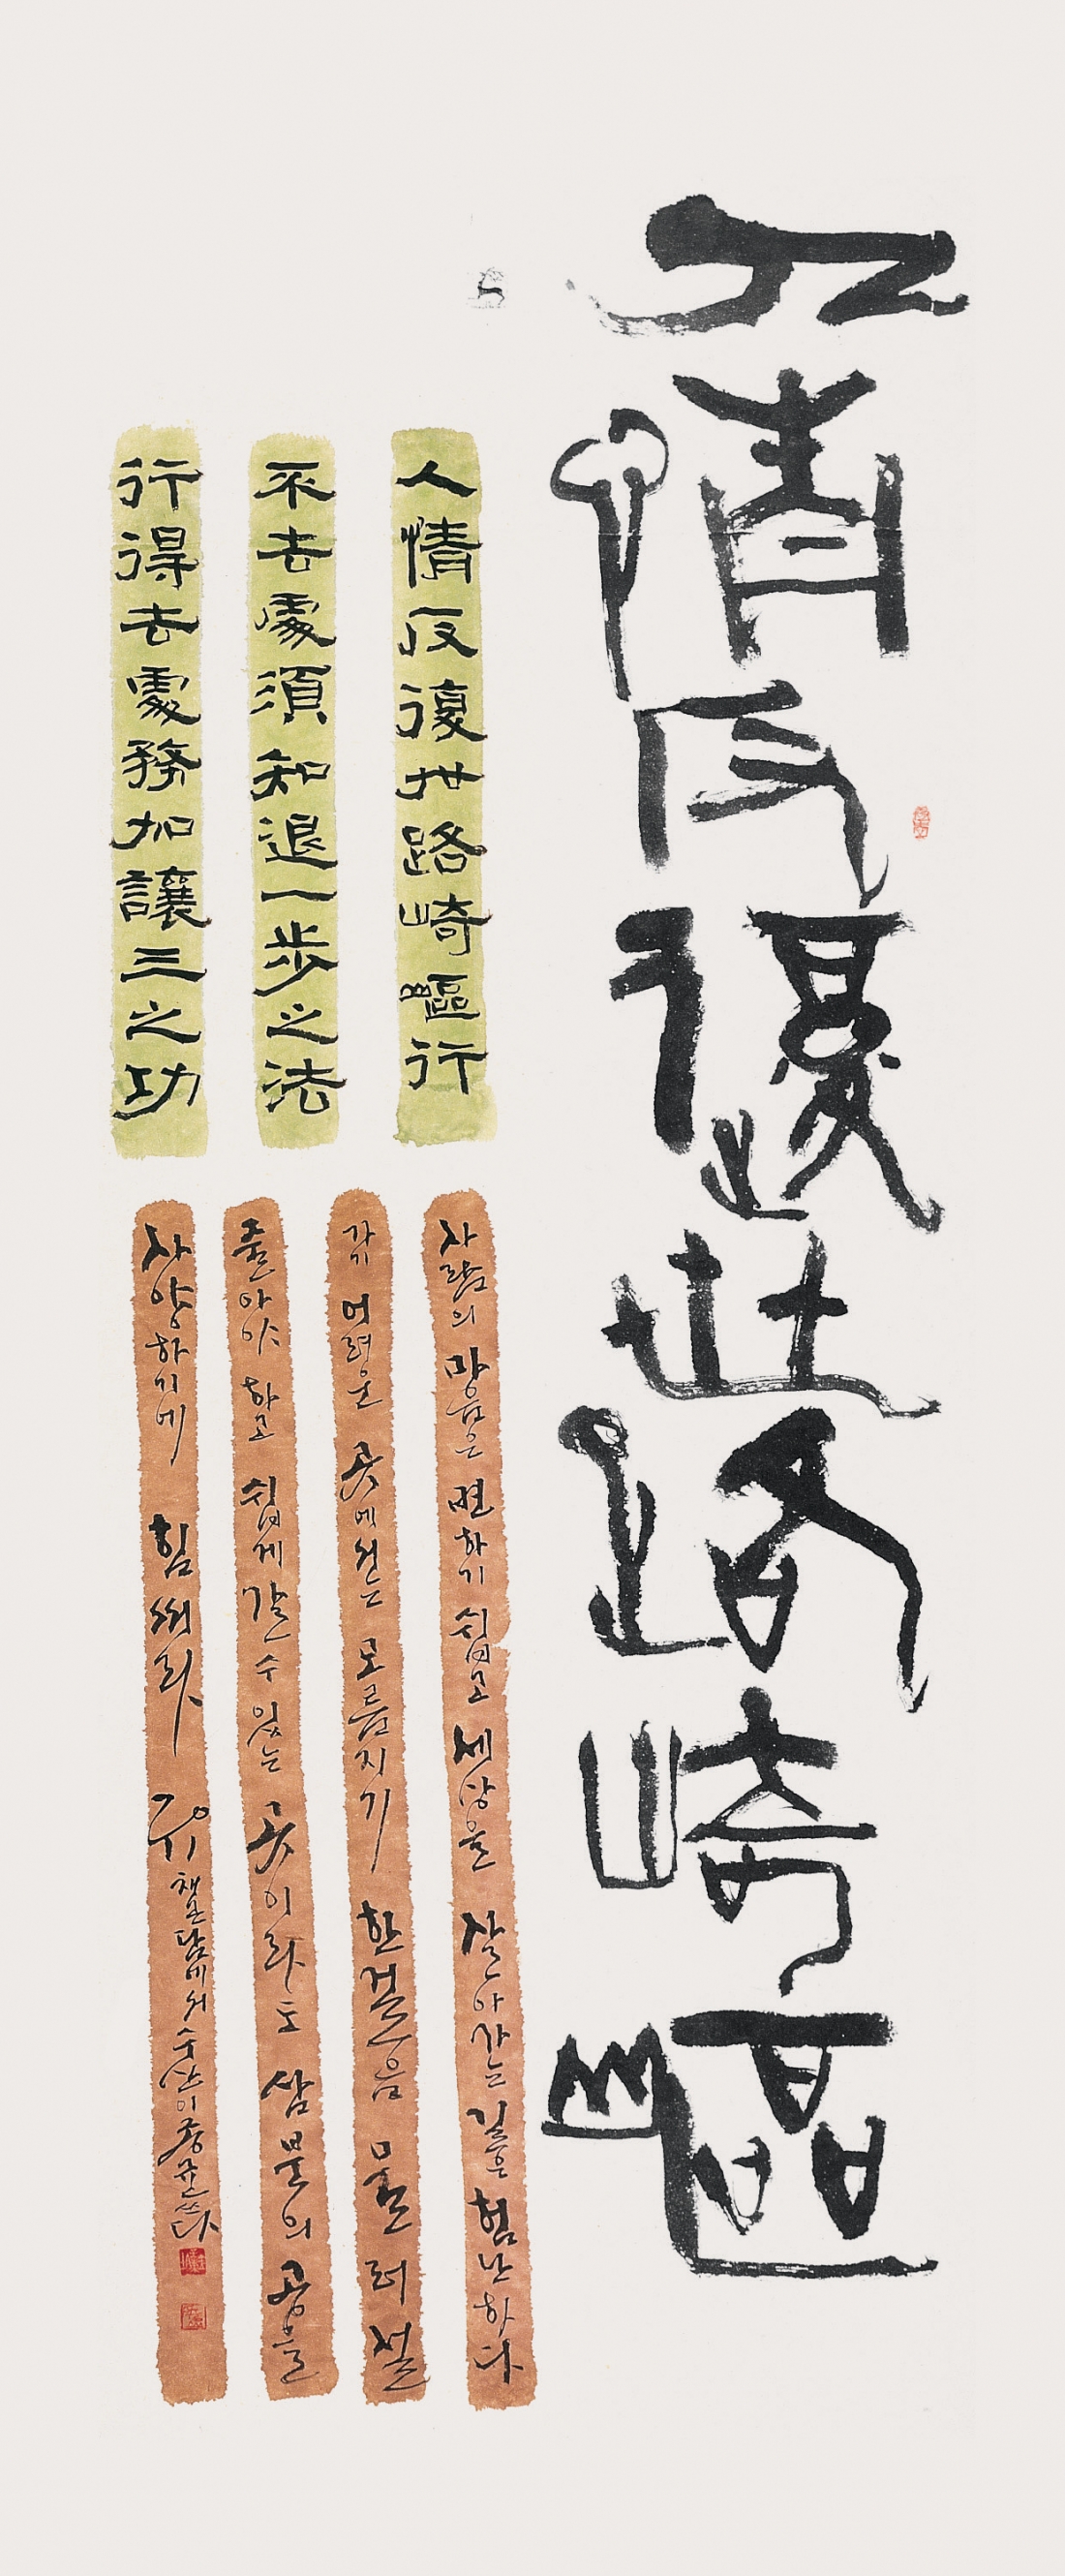 人情反復世路崎嶇
人情反復世路崎嶇行
不去處須知退一步之法
行得去處務加讓三之功
사람의 마음은 변하기 쉽고 세상을 살아가는 길은 험난하다
가기 어려운 곳에서는 모름지기 한걸음 물러설
줄 아야 하고 쉽게 갈 수 있는 곳이라도 삼분의 공을
사양하기에 힘써라 채근담에서 이종균 쓰다